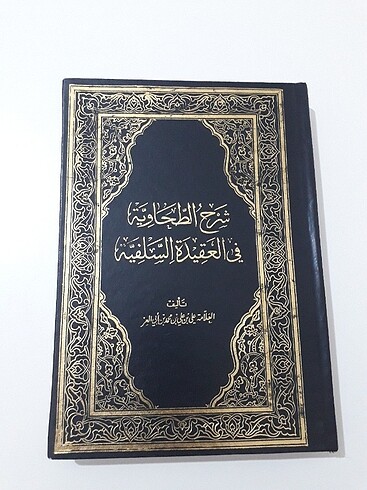 شرح الطحاوية
في العقيدة السلفية
تأليف
العلامة علي بن علي بن محمد بن أبي العز